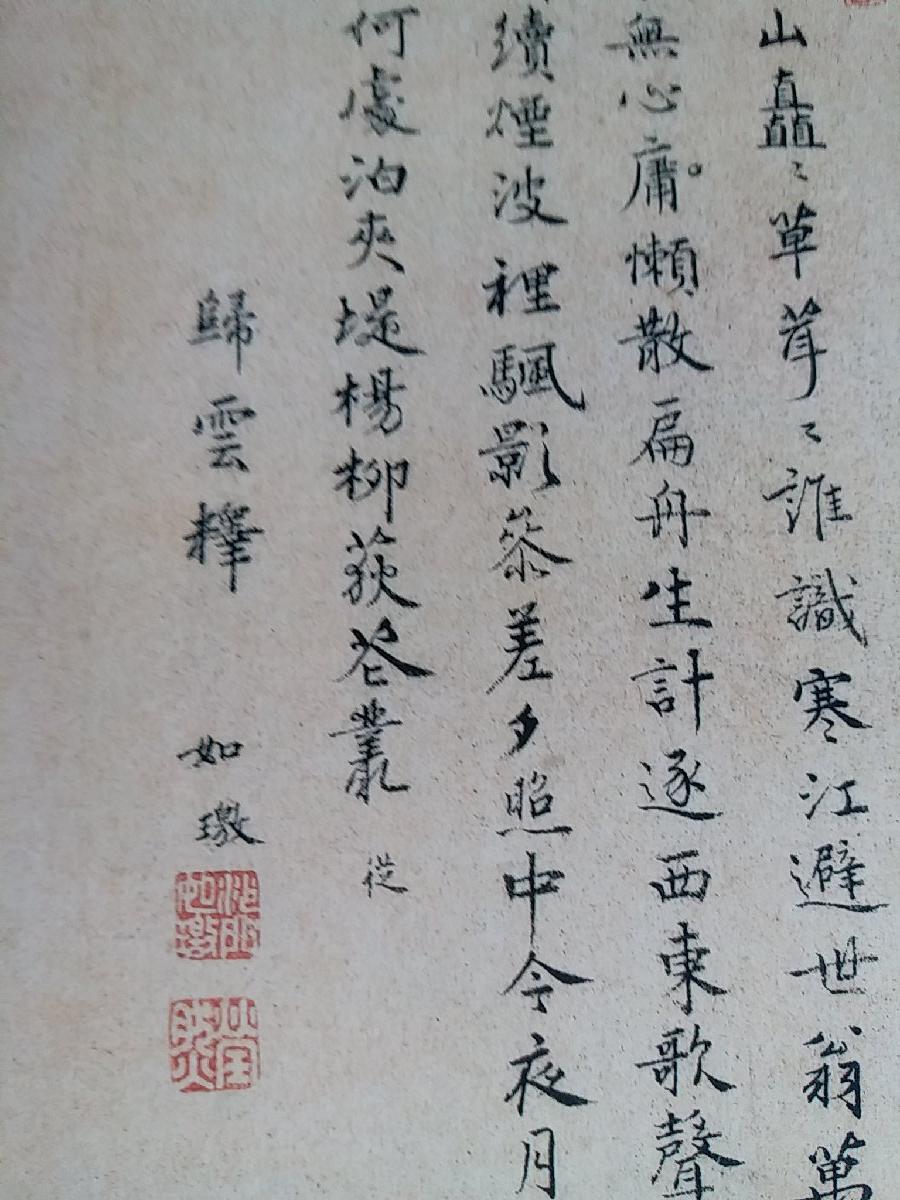 山矗〻草茸〻誰識寒江避世翁萬
無心庸懶散扁舟生計逐西東歌聲
續煙波裡颿影參差夕照中今夜月
何處泊夾堤楊柳荻花叢 從
歸雲釋 如璬